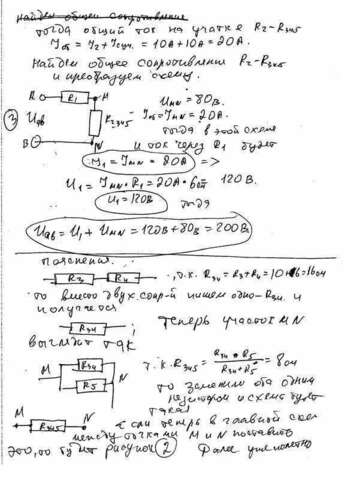 найдем общее сопротивление
тогда общий ток на участке R₂-R₃₄₅
Jоб = J₂ + Jсум. = 10А + 10А = 20А.
Найдем общее сопротивление R₂-R₃₄₅
и преобразуем схему.
R₁ M
Uмн = 80В.
Jоб = Jмн = 20А.
③ Uав R₂₃₄₅
тогда в этой схеме
В N и ток через R₁ будет
J₁ = Jмн = 20А =>
U₁ = Jмн · R₁ = 20А · 6от 120В.
U₁ = 120В тогда
Uав = U₁ + Uмн = 120В + 80В = 200В
пояснения.
R₃ R₄ , т.к. R₃₄ = R₃ + R₄ = 10+6 = 16ом
то вместо двух сопр-й пишем одно - R₃₄. и
получается
R₃₄ ; теперь участок MN
выглядит так
M R₃₄ R₅ N
т.к. R₃₄₅ = R₃₄ • R₅ / R₃₄ + R₅ = 8ом
то заменим оба одним
резистором и схема будет
такая
M R₃₄₅ N если теперь в главной схеме
между точками M и N поставить
это, то будет рисунок ② Далее уже понятно